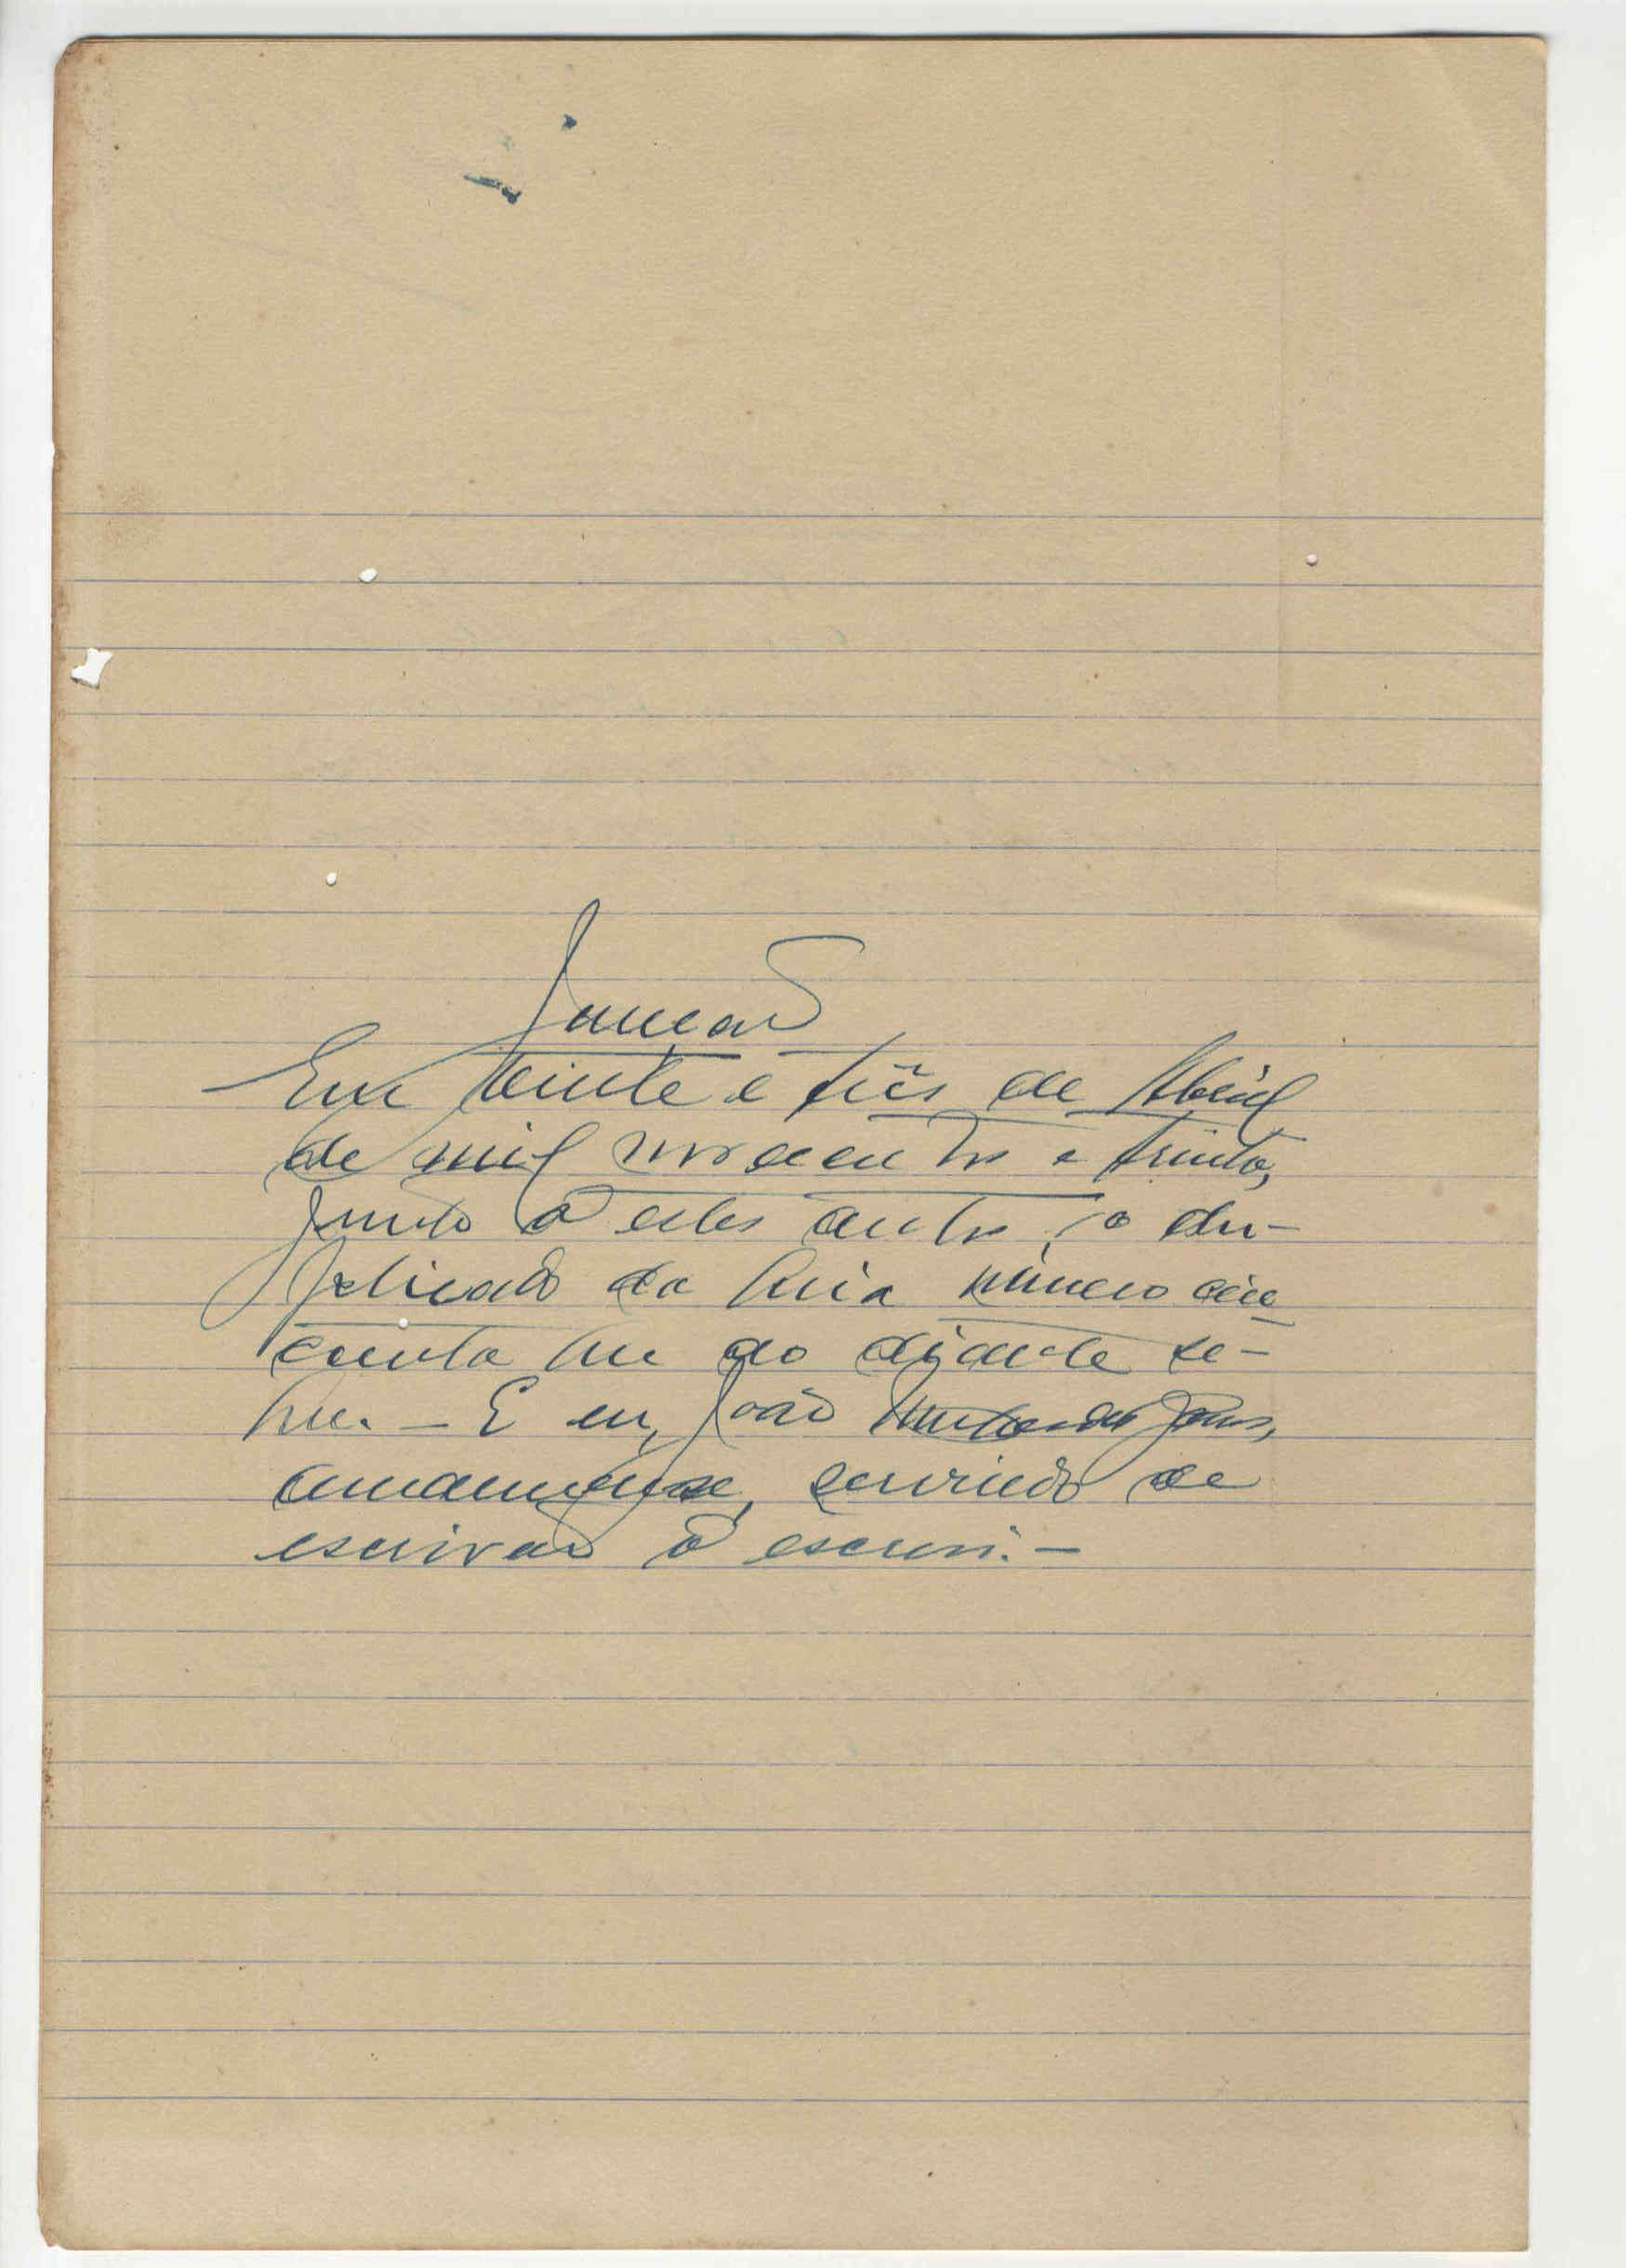 Juncção
Em vinte e três de Abril
de mil novecentos e trinta,
junto a estes autos, o du-
plicado da Guia número cin
coenta que ao diante se-
gue. - E eu, João
amanuense, servindo de
escrivão o escrevi. -